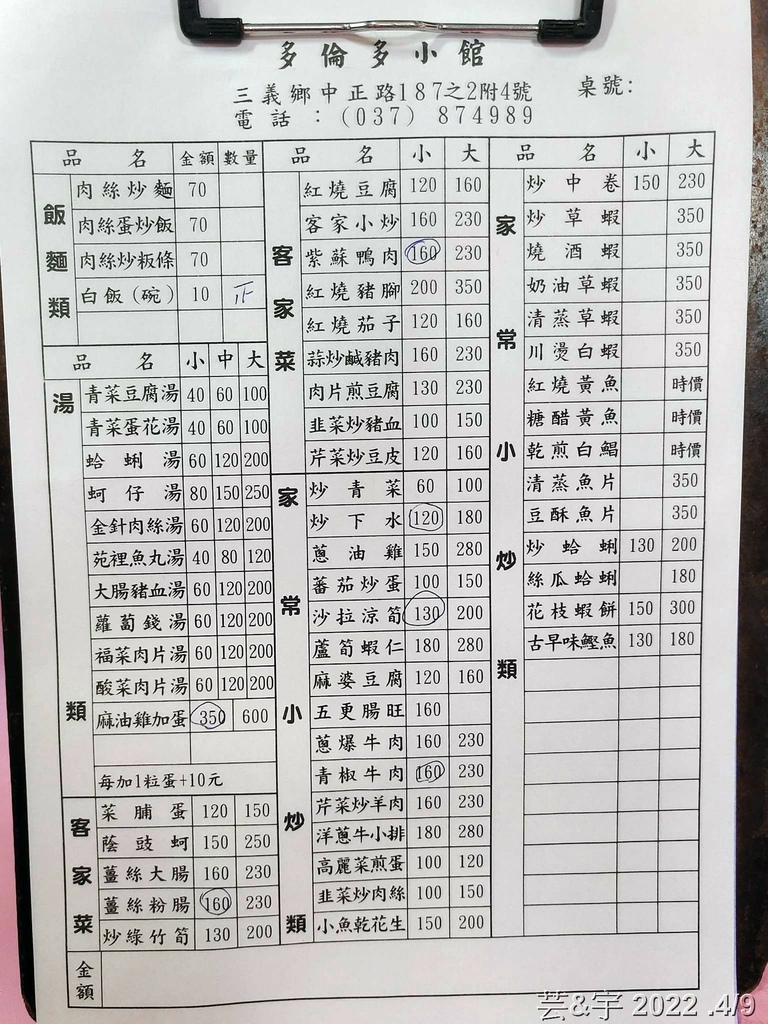 多倫多小館
三義鄉中正路187之2附4號 桌號:
電話:(037) 874989
品名 金額 數量
飯麵類
肉絲炒麵 70
肉絲蛋炒飯 70
肉絲炒粄條 70
白飯(碗) 10 正
品名 小 中 大
湯類
青菜豆腐湯 40 60 100
青菜蛋花湯 40 60 100
蛤蜊湯 60 120 200
蚵仔湯 80 150 250
金針肉絲湯 60 120 200
苑裡魚丸湯 40 80 120
大腸豬血湯 60 120 200
蘿蔔錢湯 60 120 200
福菜肉片湯 60 120 200
酸菜肉片湯 60 120 200
麻油雞加蛋 350 600
每加1粒蛋+10元
客家菜
菜脯蛋 120 150
蔭豉蚵 150 250
薑絲大腸 160 230
薑絲粉腸 160 230
炒綠竹筍 130 200
品名 小 大
客家菜
紅燒豆腐 120 160
客家小炒 160 230
紫蘇鴨肉 160 230
紅燒豬腳 200 350
紅燒茄子 120 160
蒜炒鹹豬肉 160 230
肉片煎豆腐 130 230
韭菜炒豬血 100 150
芹菜炒豆皮 120 160
家常小炒類
炒青菜 60 100
炒下水 120 180
蔥油雞 150 280
蕃茄炒蛋 100 150
沙拉涼筍 130 200
蘆筍蝦仁 180 280
麻婆豆腐 120 160
五更腸旺 160
蔥爆牛肉 160 230
青椒牛肉 160 230
芹菜炒羊肉 160 230
洋蔥牛小排 180 280
高麗菜煎蛋 100 120
韭菜炒肉絲 100 150
小魚乾花生 150 200
品名 小 大
家常小炒類
炒中卷 150 230
炒草蝦 350
燒酒蝦 350
奶油草蝦 350
清蒸草蝦 350
川燙白蝦 350
紅燒黃魚 時價
糖醋黃魚 時價
乾煎白鯧 時價
清蒸魚片 350
豆酥魚片 350
炒蛤蜊 130 200
絲瓜蛤蜊 180
花枝蝦餅 150 300
古早味鰹魚 130 180
金額
芸&宇 2022 .4/9